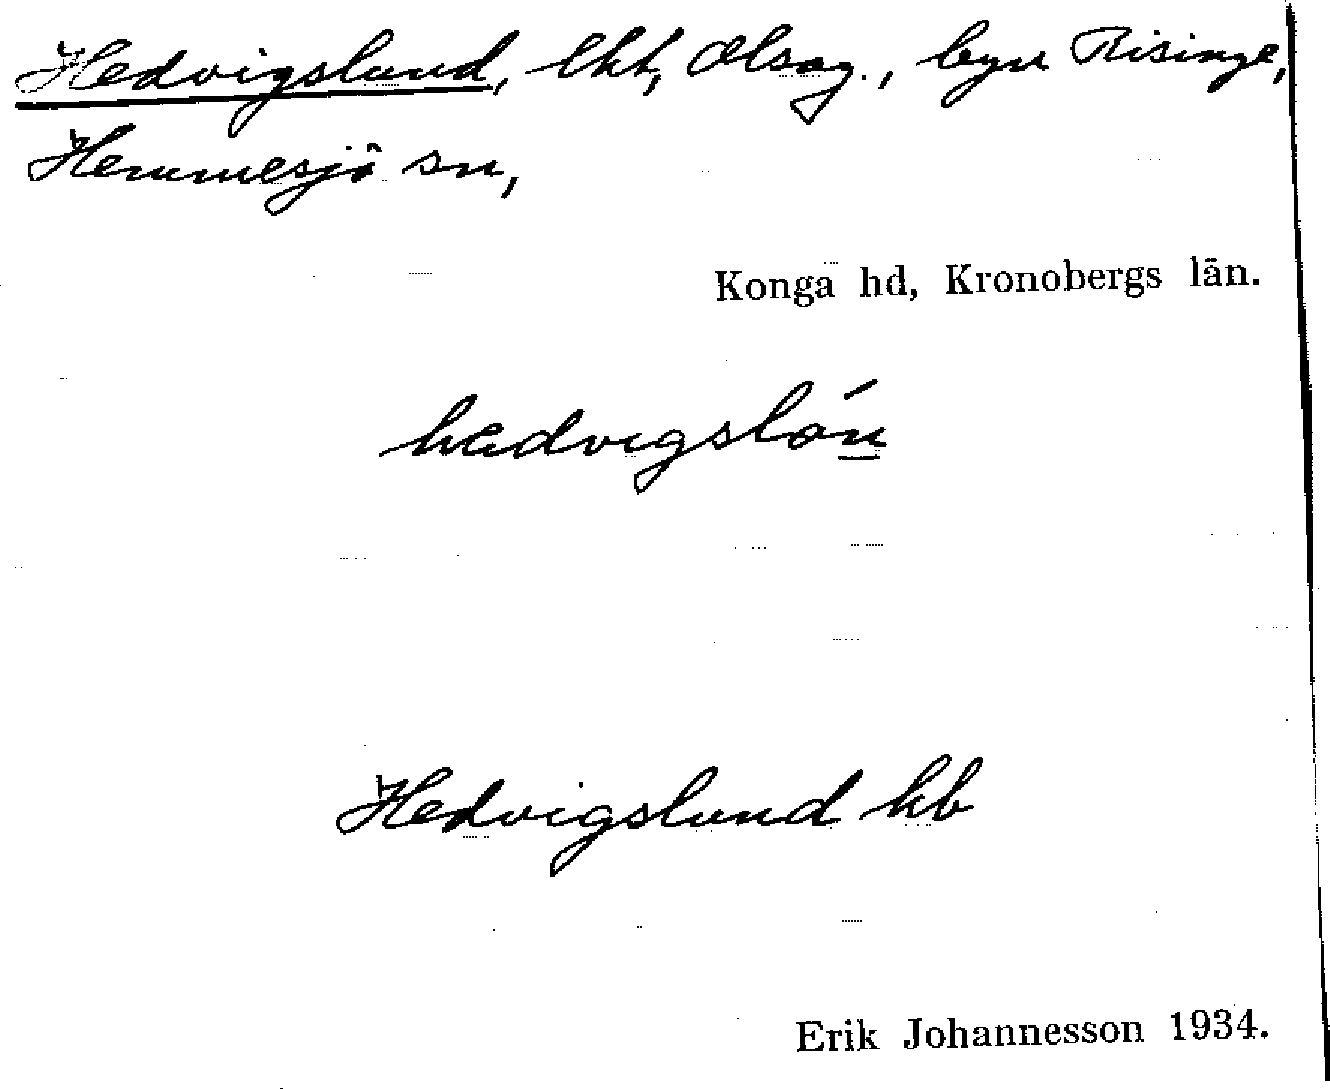 Hedvigslund, lht, Ølsag., byn Risinge,
Hemmesjö sn,
Konga hd, Kronobergs län.
hædvigslón
Hedvigslund kb
Erik Johannesson 1934.